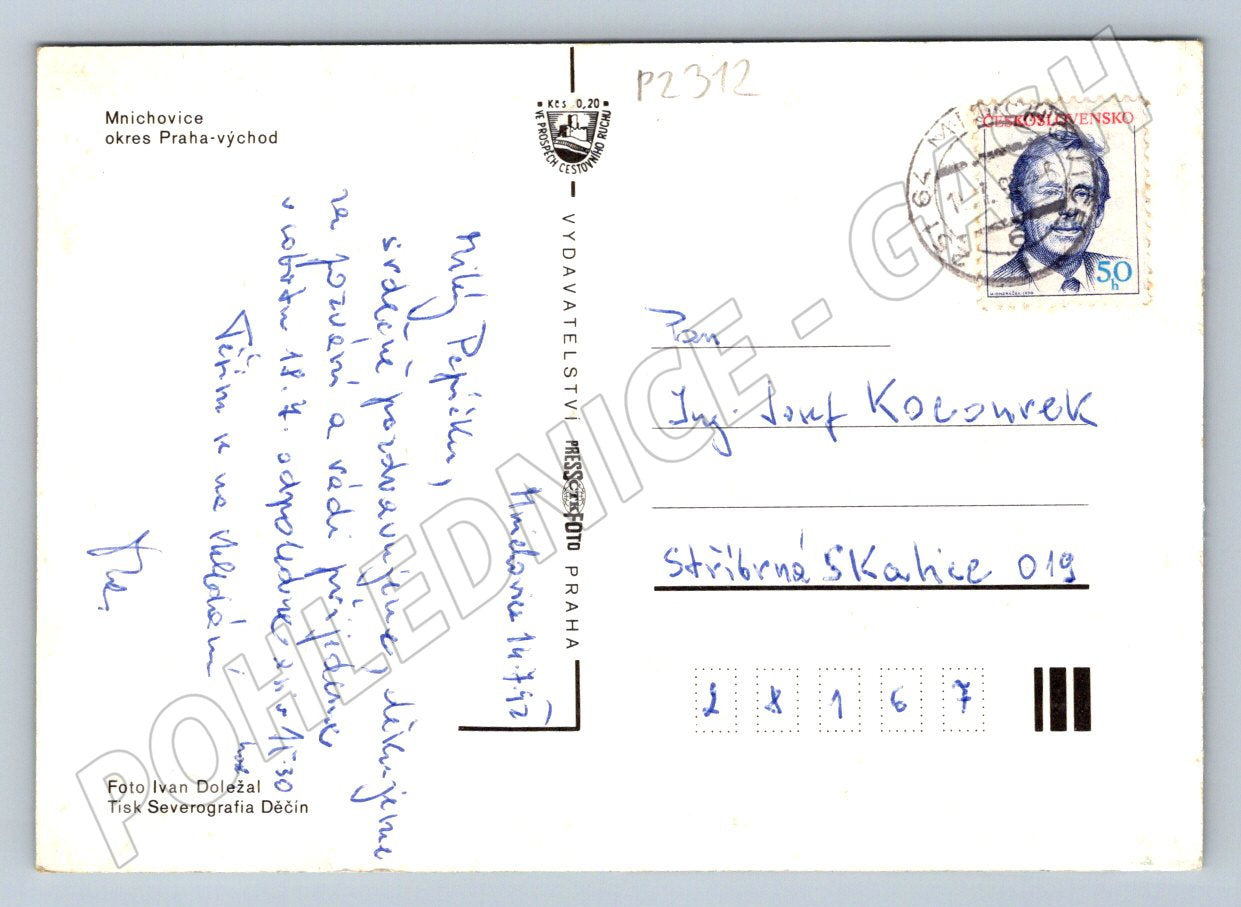 Mnichovice
okres Praha-východ
Kčs 0,20
VE PROSPĚCH CESTOVNÍHO RUCHU
P2312
ČESKOSLOVENSKO
50
h
251 64
VYDAVATELSTVÍ PRESSFOTO PRAHA
ČTK
Mnichovice 14.7.92
Milý Pepíčku,
srdečně pozdravujeme, děkujeme
za pozvání a rádi přijedeme
v sobotu 18.7. odpoledne
hod
Těším se na shledání
Pan
Ing. Josef Kocourek
Stříbrná Skalice 019
28167
Foto Ivan Doležal
Tisk Severografia Děčín
POHLEDNICE - GASH